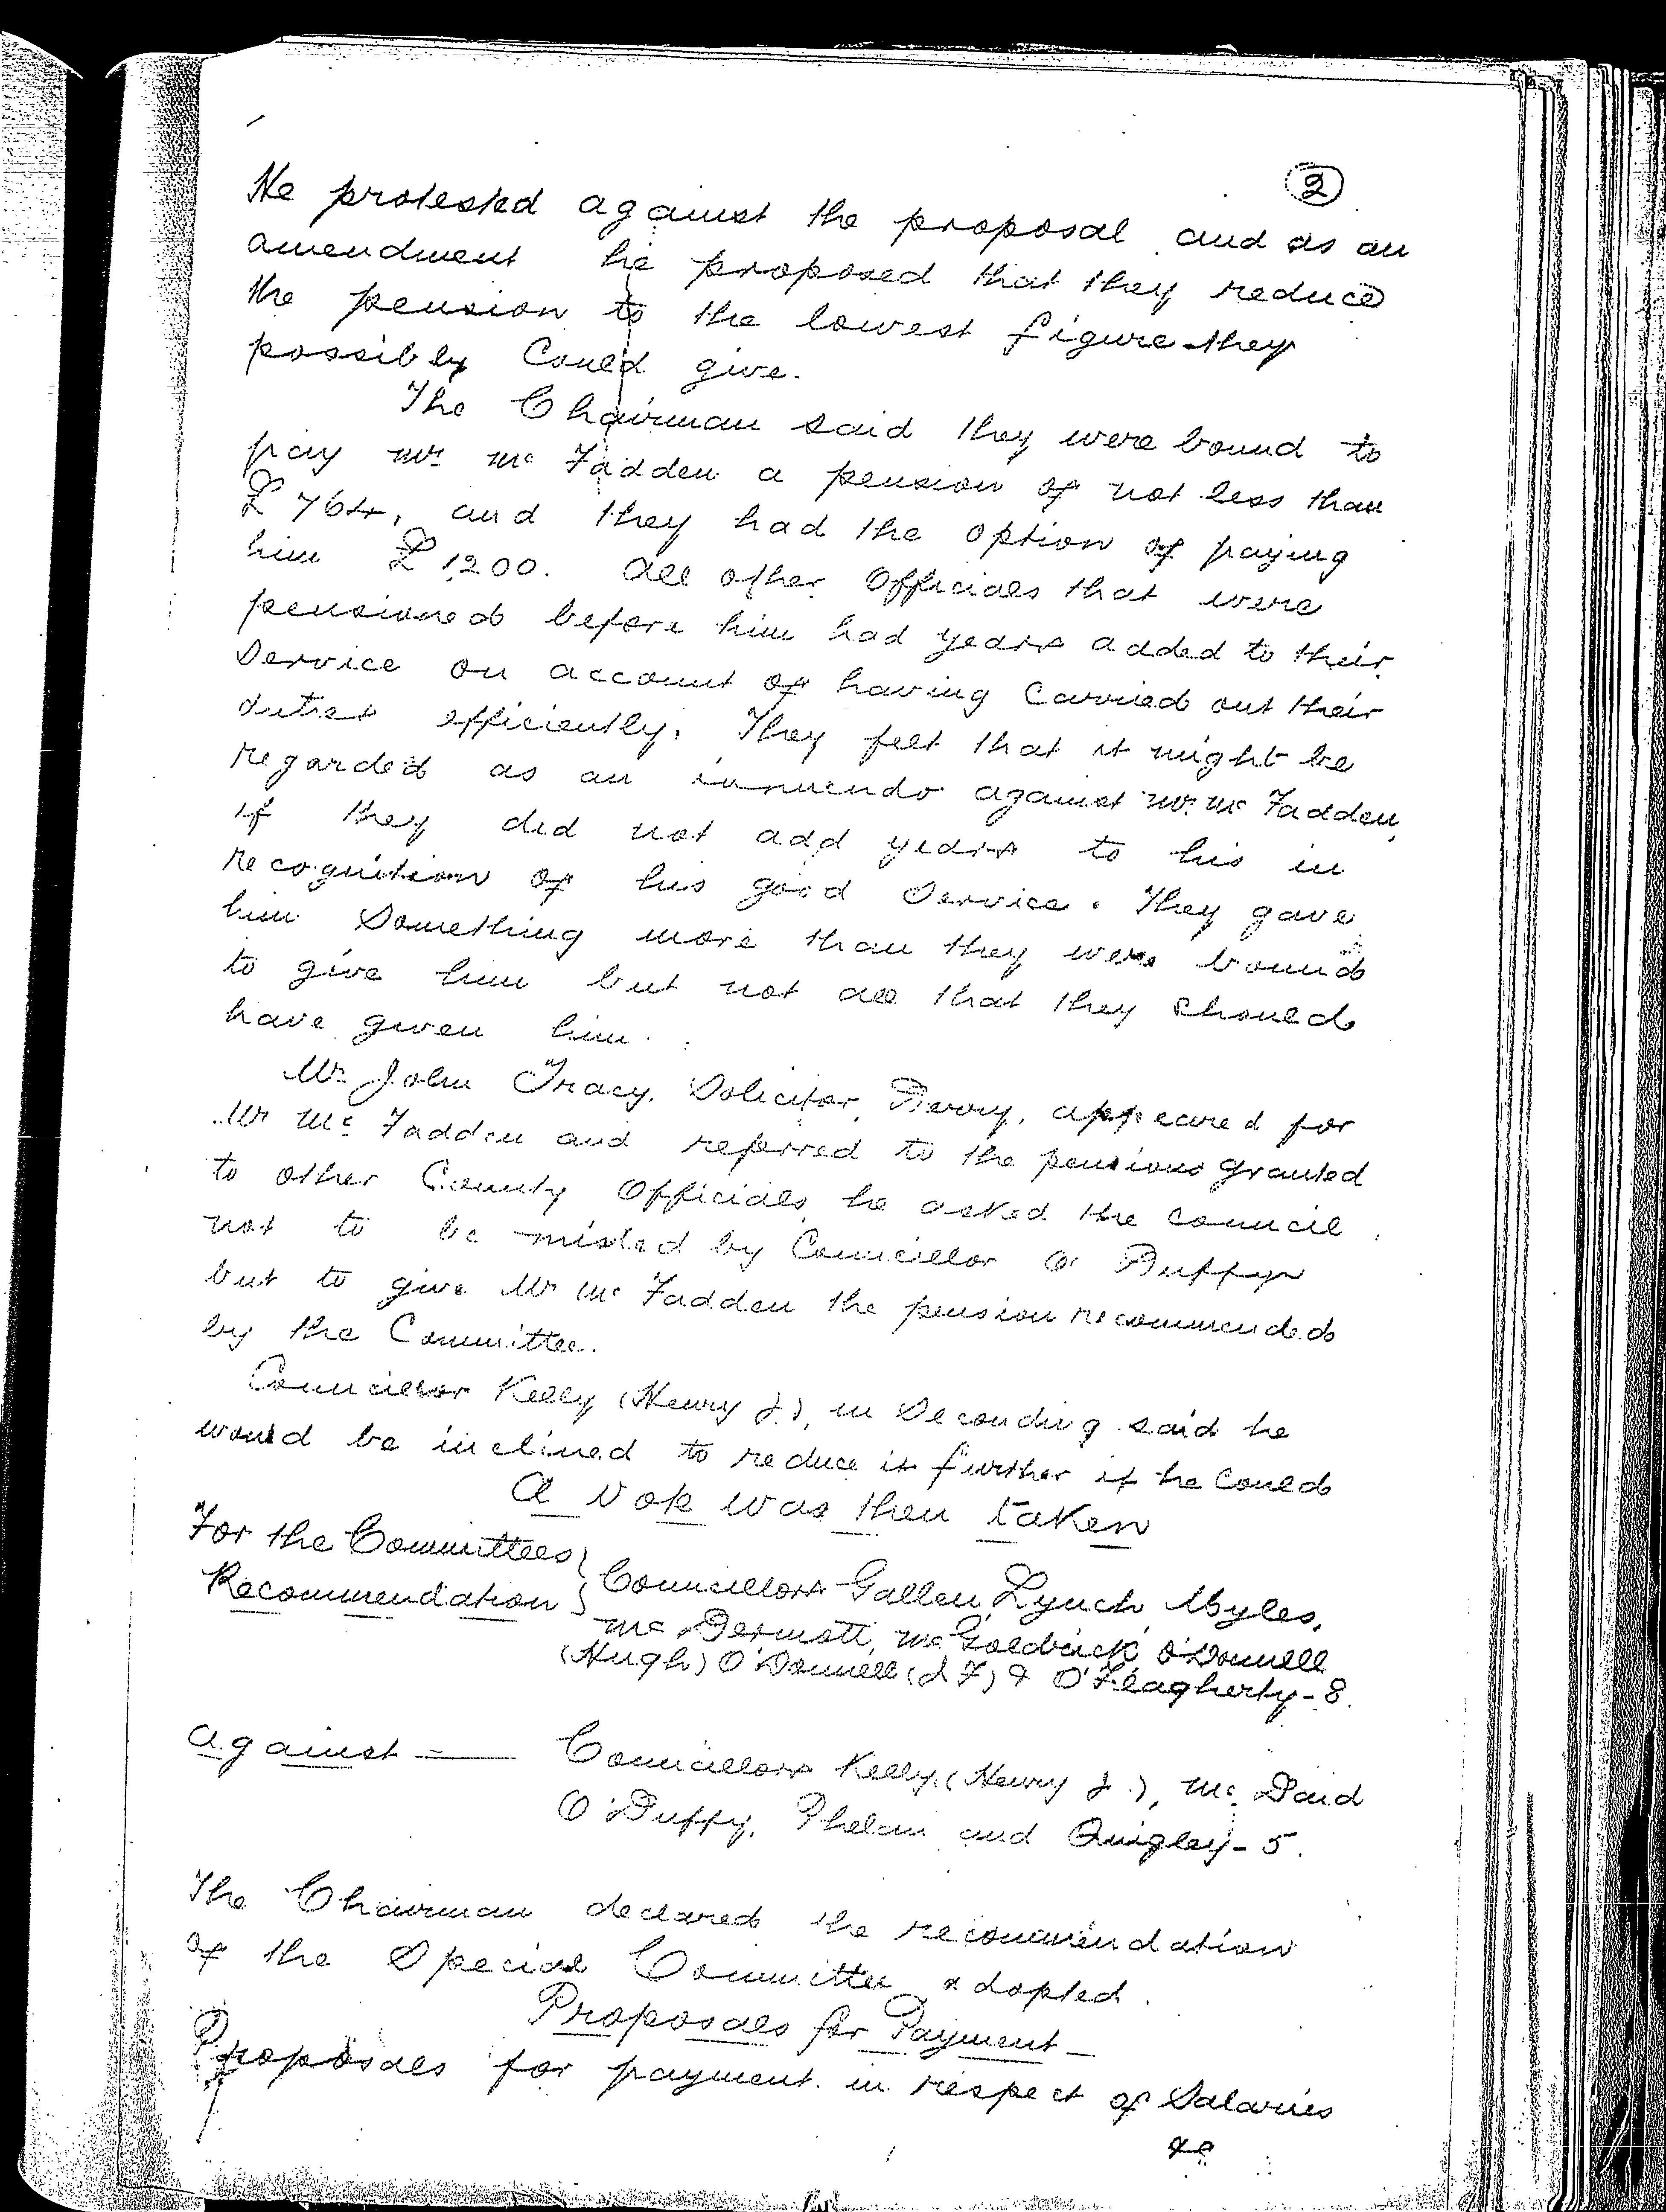 2
He protested against the proposal and as an
amendment he proposed that they reduce
the pension to the lowest figure they
possibly could give.
The Chairman said they were bound to
pay Mr. McFadden a pension of not less than
£764, and they had the option of paying
him £1200. All other Officials that were
pensioned before him had years added to their
Service on account of having Carried out their
duties efficiently. They felt that it might be
regarded as an innuendo against Mr. McFadden
if they did not add years to his in
recognition of his good Service. They gave
him Something more than they were bound
to give him but not all that they should
have given him.
Mr John Tracy, Solicitor, Derry, appeared for
Mr McFadden and referred to the pensions granted
to other County Officials, he asked the council
not to be misled by Councillor O'Duffy
but to give Mr McFadden the pension recommended
by the Committee.
Councillor Kelly (Henry J.), in Seconding said he
would be inclined to reduce it further if he Could
A Vote was then taken
For the Committees
Recommendation } Councillors Gallen, Lynch, Myles,
McDermott, McGoldrick, O'Donnell
(Hugh) O'Donnell (J F) & O'Flagherty - 8.
Against — Councillors Kelly, (Henry J.), McDaid
O'Duffy, Phelan and Quigley - 5.
The Chairman declared the recommendation
of the Special Committee adopted.
Proposals for Payment
Proposals for payment in respect of Salaries
&c